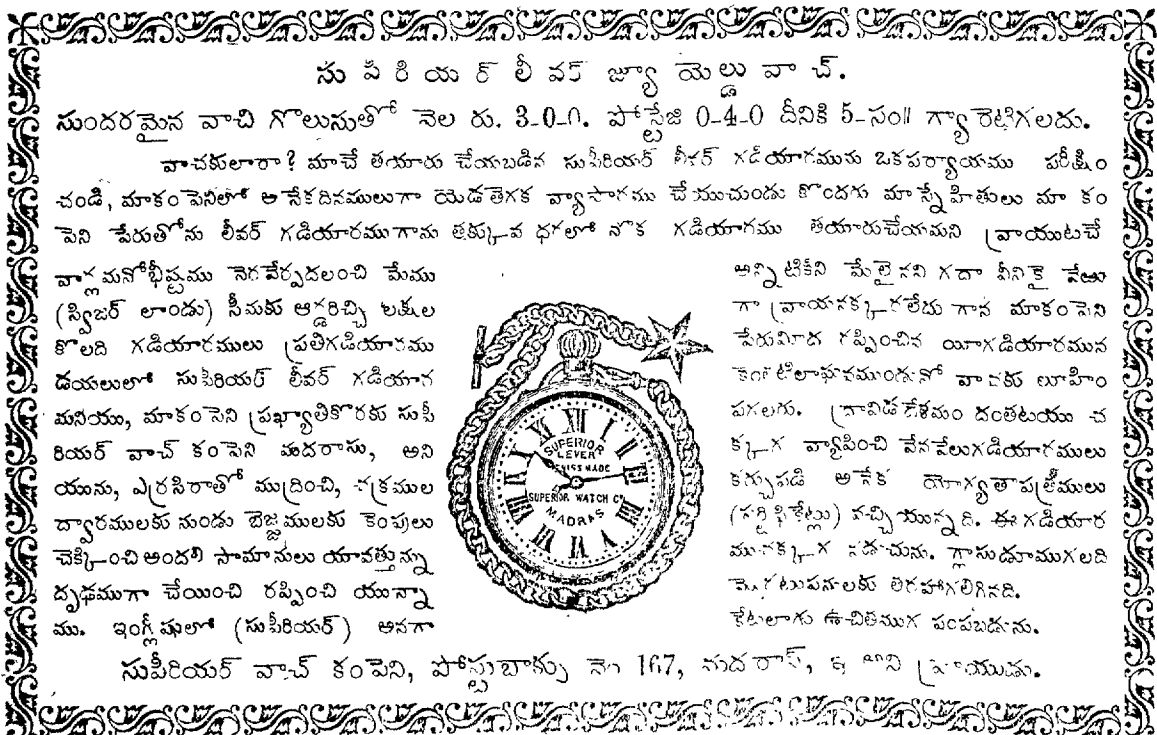 సుపిరియర్ లీవర్ జ్యూయెల్డు వాచ్.
సుందరమైన వాచి గొలుసుతో వెల రు. 3-0-0. పోస్టేజి 0-4-0 దీనికి 5-సం॥ గ్యారెంటిగలదు.
వాచకులారా? మాచే తయారు చేయబడిన సుపీరియర్ లీవర్ గడియారమును ఒకపర్యాయము పరీక్షిం
చండి, మాకంపెనిలో అనేకదినములుగా యెడతెగక వ్యాపారము చేయుచుండు కొందరు మాస్నేహితులు మా కం
పెని పేరుతోను లీవర్ గడియారముగాను తక్కువ ధరలో నొక గడియారము తయారుచేయమని వ్రాయుటచే
వార్లమనోభీష్టము నెరవేర్పదలంచి మేము
(స్విజర్ లాండు) సీమకు ఆర్డరిచ్చి లక్షల
కొలది గడియారములు ప్రతిగడియారము
డయలులో సుపీరియర్ లీవర్ గడియార
మనియు, మాకంపెని ప్రఖ్యాతికొరకు సుపీ
రియర్ వాచ్ కంపెని మదరాసు, అని
యును, ఎర్రసిరాతో ముద్రించి, చక్రముల
ద్వారములకు నుండు బెజ్జములకు కెంపులు
చెక్కించి అందలి సామానులు యావత్తున్ను
దృఢముగా చేయించి రప్పించి యున్నా
ము. ఇంగ్లీషులో (సుపీరియర్) అనగా
అన్నిటికిని మేలైనని గదా వీనికై వేఱు
గా వ్రాయనక్కరలేదు గాన మాకంపెని
పేరుమీద రప్పించిన యీగడియారమున
వాచకు లూహిం
పగలరు. ద్రావిడదేశమం దంతటయు చ
క్కగ వ్యాపించి వేనవేలుగడియారములు
ఖర్చుపడి అనేక యోగ్యతాపత్రీములు
(సర్టిఫికేట్లు) వచ్చియున్నది. ఈ గడియార
ము చక్కగ నడుచును. గ్లాసుడూముగలది
మొరటుపనులకు తగినది.
కేటలాగు ఉచితముగ పంపబడును.
XII
SUPERIOR
LEVER
SWISS MADE
SUPERIOR WATCH Cº
MADRAS
సుపీరియర్ వాచ్ కంపెని, పోస్టుబాక్సు నెం 167, మదరాస్, అని వ్రాయుడు.